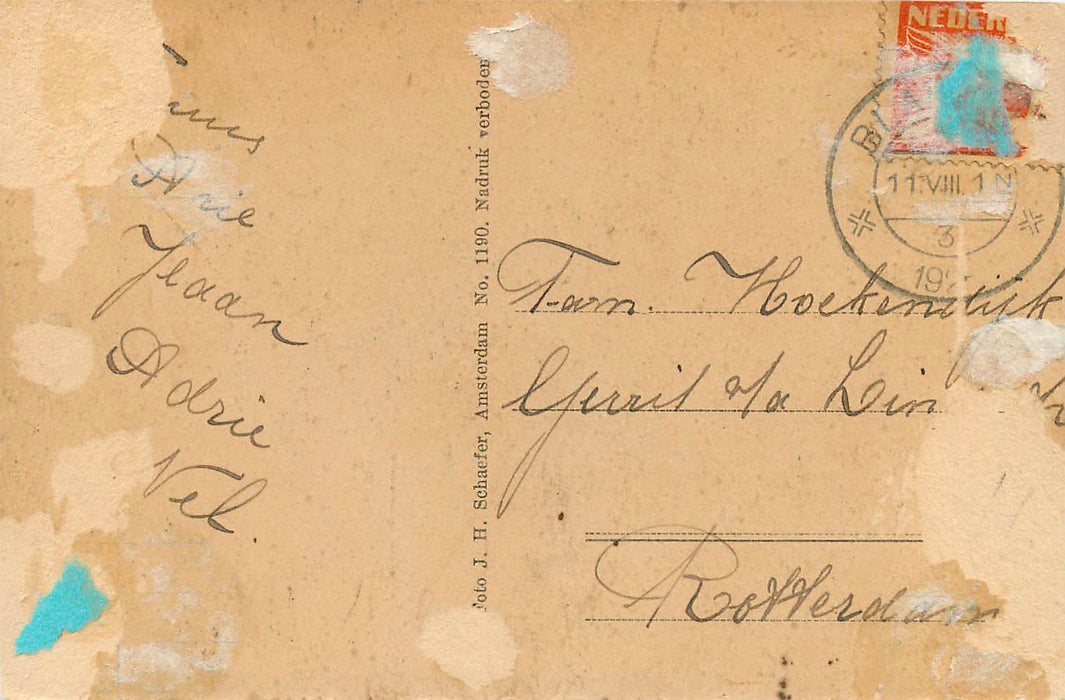 Arie
Jeaan
Adrie
Nel.
Foto J. H. Schaefer, Amsterdam No. 1190. Nadruk verboden
NEDER
11.VIII. 1 N
3
Fam. Hoekendijk
Gerrit v/d Lin
Rotterdam